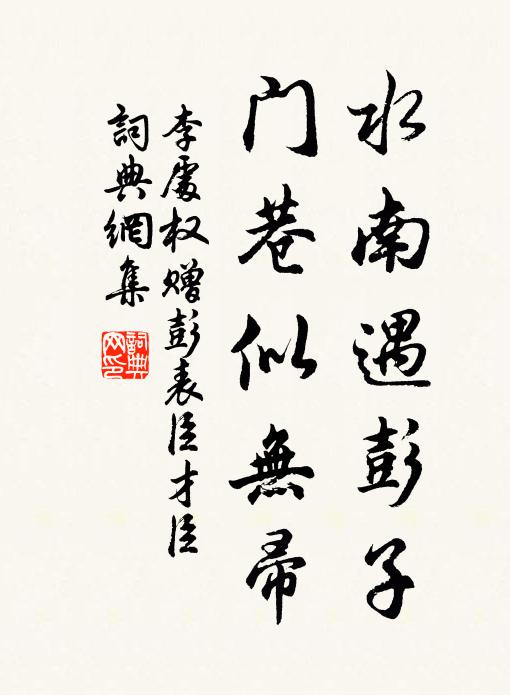 水南遇彭子
门巷似無帚
李處权赠彭表臣才臣
詞典網集
詞典网印